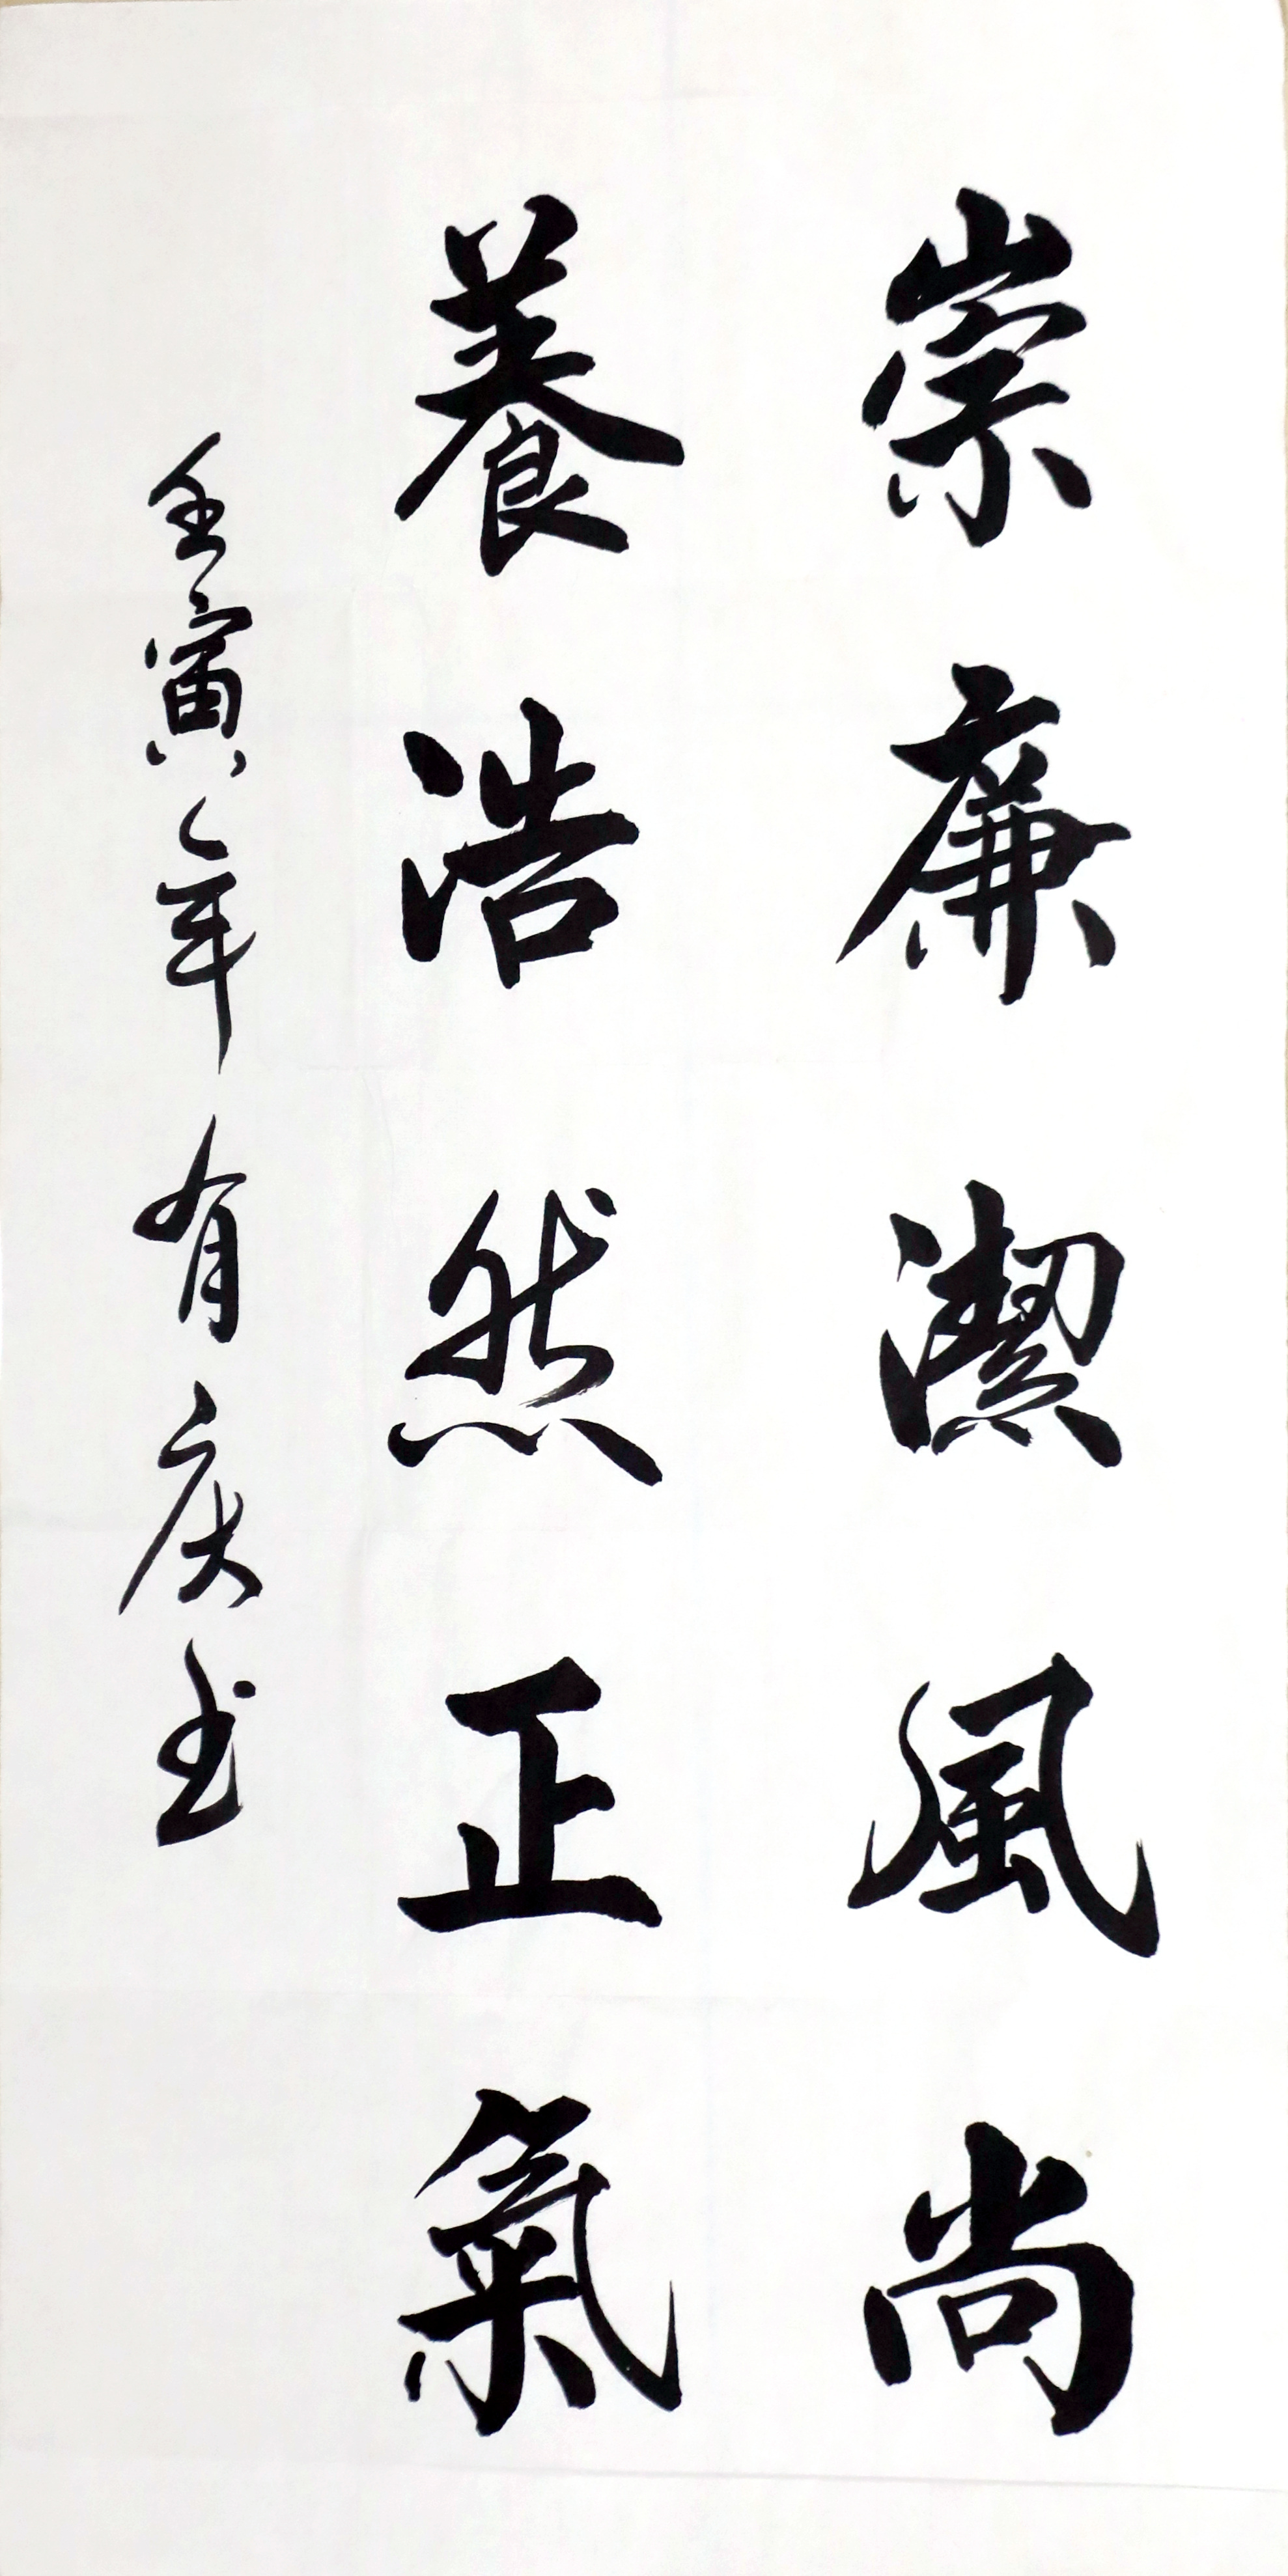 崇廉潔風尚
養浩然正氣
壬寅年有庆书